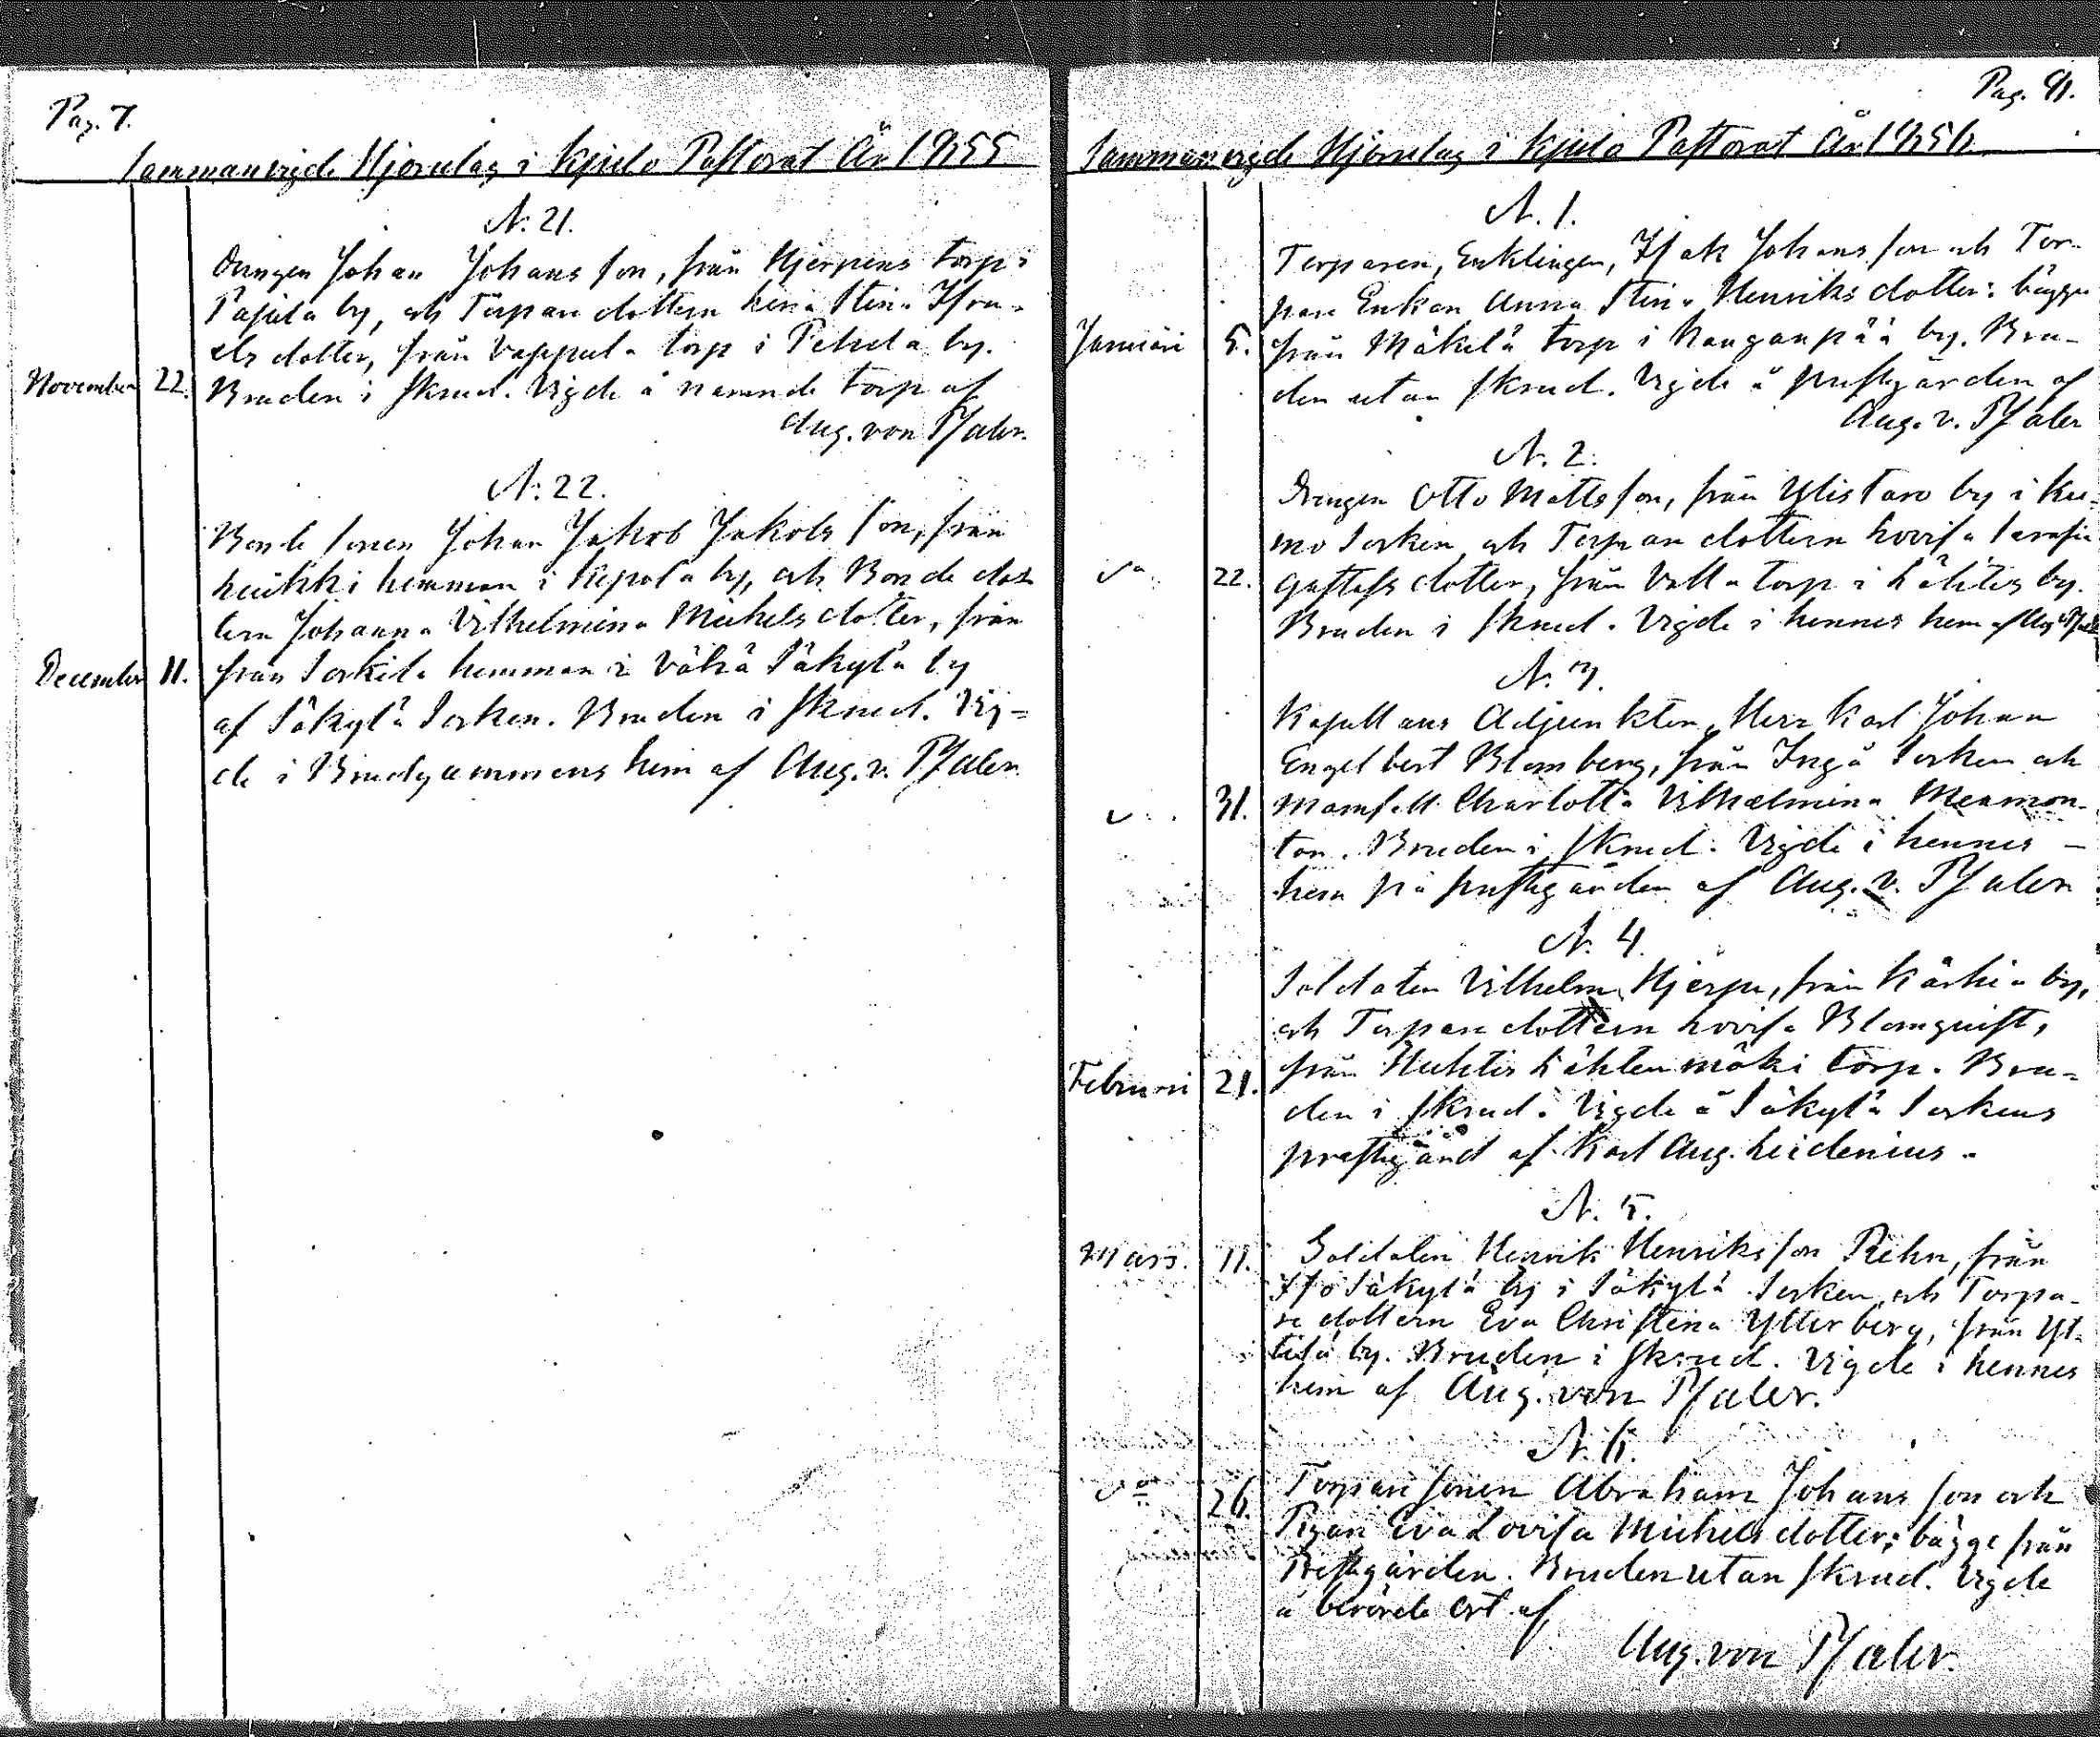 Pag. 7.
Sammanvigde Hjonelag i Kjulo Pastorat År 1855
N: 21.
Drengen Johan Johansson, från Hjerpens torp i
Pajula by, och Torpare dottern Lena Stina Isra-
els dotter, från Vappula torp i Pehula by.
November 22. Bruden i skrud. Vigde å namnde torp af
Aug. von Pfaler.
N: 22.
Bonde sonen Johan Jakob Jakobs son, från
Luikki hemman i Kepola by, och Bonde dot-
tern Johanna Vilhelmina Michels dotter, från
December 11. från Sorkila hemman i Vähä Säkylä by
af Säkylä Socken. Bruden i skrud. Vig-
de i Brudgummens hem af Aug. v. Pfaler.
Pag. 8.
Sammanvigde Hjonelag i Kjulo Pastorat År 1856
N. 1.
Torparen, Enklingen, Isak Johansson och Tor-
pare Enkan Anna Stina Henriks dotter: bägge
Januari 5. från Mäkelä torp i Kanganpää by. Bru-
den utan skrud. Vigde å prestgården af
Aug. v. Pfaler
N. 2.
Drengen Otto Mattsson, från Ylistaro by i Ku-
mo Socken och Torpare dottern Lovisa Serafia
d:o 22. Gustafs dotter, från Valla torp i Lähtis by.
Bruden i skrud. Vigde i hennes hem af Aug. v. Pfaler
N. 3.
Kapellans Adjunkten, Herr Karl Johan
Engelbert Blomberg, från Ingå Socken och
31. Mamsell Charlotta Vilhelmina Menmon-
ton. Bruden i skrud. Vigde i hennes -
hem på prestgården af Aug. v. Pfaler
N. 4.
Soldaten Vilhelm Hjerpe, från Karhia by,
och Torpare dottern Lovisa Blomquist,
Februari 21. från Huhtis Lähtenmäki torp. Bru-
den i skrud. Vigde å Säkylä Sockens
prestgård af Karl Aug. Leidenius.
N. 5.
Mars. 11. Soldaten Henrik Henriksson Rehn, från
Iso Säkylä by i Säkylä Socken och Torpa-
re dottern Eva Christina Ytterberg, från Yt-
tilä by. Bruden i skrud. Vigde i hennes
hem af Aug. von Pfaler.
N. 6.
d:o 26. Torpare sonen Abraham Johans son och
Pigan Eva Lovisa Michels dotter; bägge från
Prestgården. Bruden utan skrud. Vigde
å berörde ort af
Aug. von Pfaler.